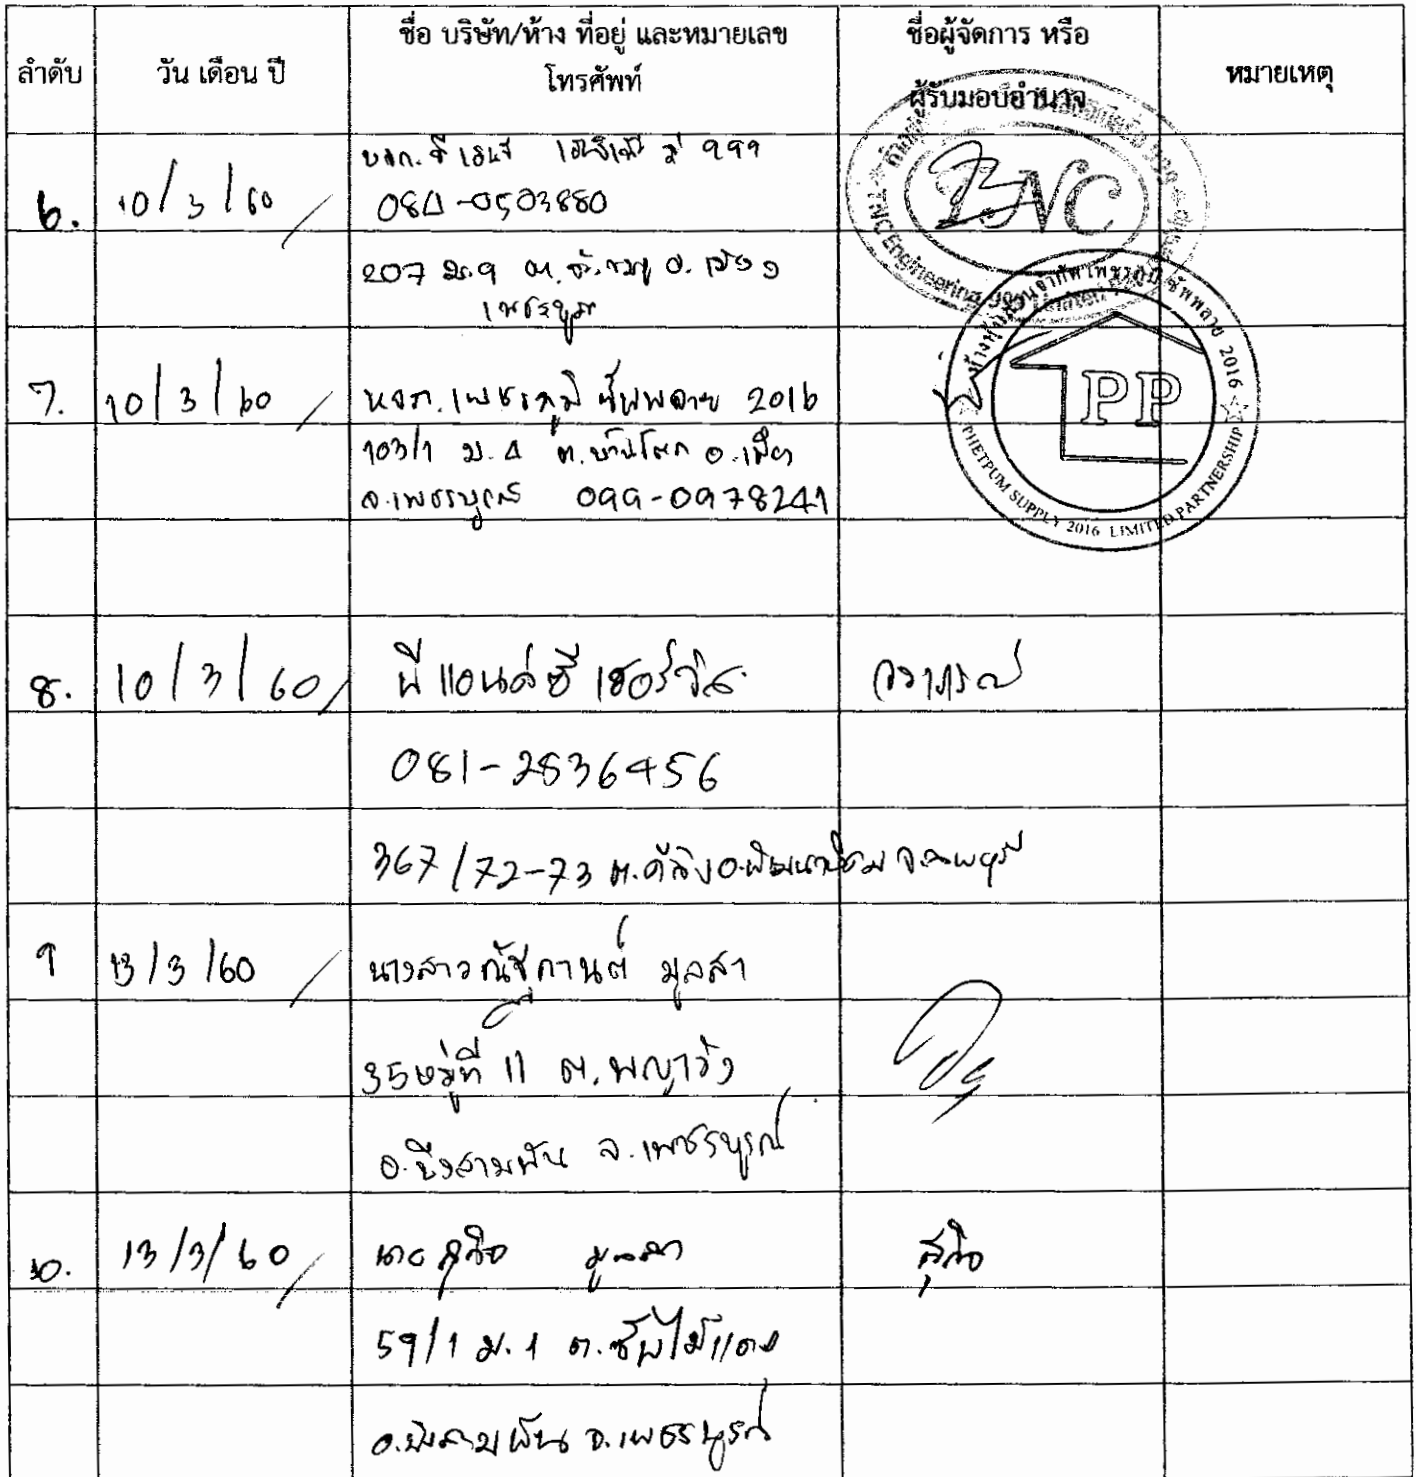 ลำดับ วัน เดือน ปี ชื่อ บริษัท/ห้าง ที่อยู่ และหมายเลข โทรศัพท์ ชื่อผู้จัดการ หรือ ผู้รับมอบอำนาจ หมายเหตุ
999
6. 10/3/60 084-0503880
TNC
TNC Engineering 999 Limited
207 ม.9 ต. อ. เมือง
7. 10/3/60 หจก. เพชรภูมิ ซัพพลาย 2016
103/1 ม.4 ต. บ้านโตก อ. เมือง
จ.เพชรบูรณ์ 099-0978241
ห้างหุ้นส่วนจำกัด เพชรภูมิ ซัพพลาย 2016
PP
PHETPUM SUPPLY 2016 LIMITED PARTNERSHIP
8. 10/3/60 พี แอนด์ ซี เซอร์วิส วราภรณ์
081-2836456
367/72-73 ต.ดีลัง อ.พัฒนานิคม จ.ลพบุรี
9 13/3/60 นางสาวณัฐกานต์ มูลสา
35 หมู่ที่ 11 ต.พญาวัง
อ.บึงสามพัน จ.เพชรบูรณ์
10. 13/3/60 นาย มูลสา
59/1 ม.1 ต.ซับไม้แดง
อ.บึงสามพัน จ.เพชรบูรณ์